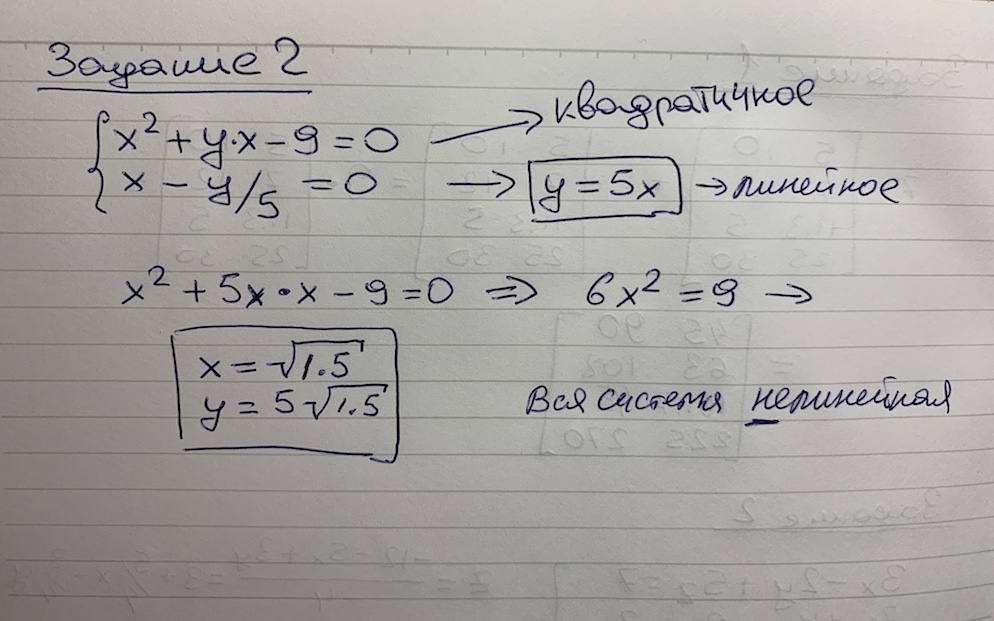 Задание 2
x² + y·x – 9 = 0 → квадратичное
x – y/5 = 0 → y = 5x → линейное
x² + 5x·x – 9 = 0 ⇒ 6x² = 9 →
x = √1.5
y = 5√1.5
Вся система нелинейная